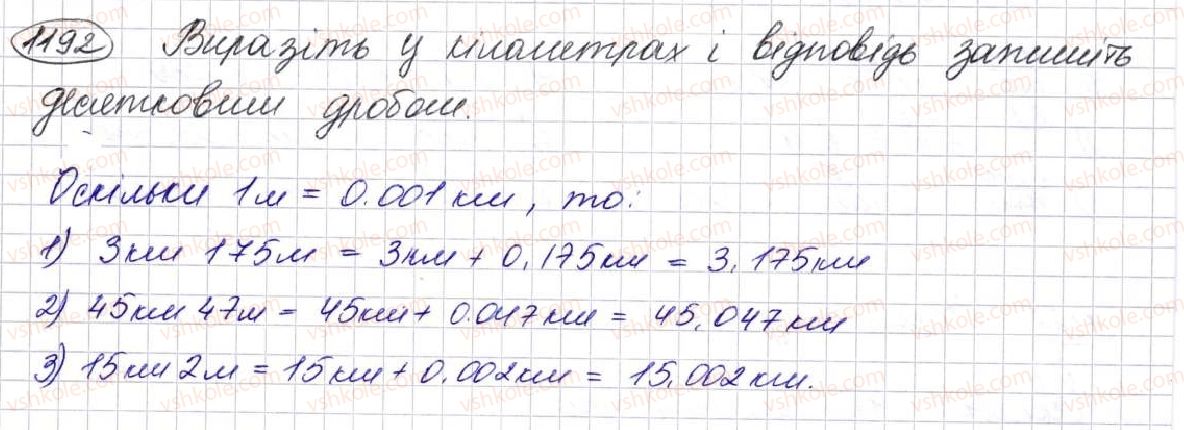 1192 Виразіть у кілометрах і відповідь запишіть
десятковим дробом.
Оскільки 1м = 0.001км, то:
1) 3км 175м = 3км + 0,175км = 3,175км
2) 45км 47м = 45км + 0.047км = 45,047км
3) 15км 2м = 15км + 0.002км = 15,002км.